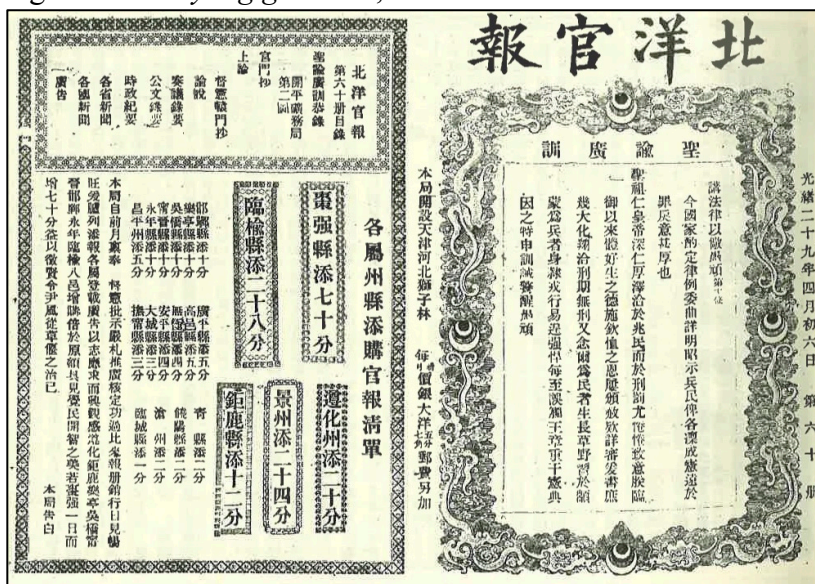 北洋官報
光緒二十九年四月初六日　第六十册
聖諭廣訓
講法律以儆愚頑
今國家酌定律例委曲詳明昭示兵民俾各凜成憲遠於
罪戾意甚厚也
聖祖仁皇帝深仁厚澤洽於兆民而於刑罰尤惓惓致意朕臨
御以來體好生之德施欽恤之恩屢頒赦款詳審爰書庶
幾大化翔洽刑期無刑又念爾為民者生長草野習於顓
蒙為兵者身隸戎行易逞強悍每至誤觸王章重干憲典
因之特申訓誡警醒愚頑
本局開設天津河北獅子林
價銀大洋 郵費另加
北洋官報
第六十册目錄
聖諭廣訓恭錄
開平礦務局
第二圖
宮門抄
上諭
督憲轅門抄
論說
奏議錄要
公文錄要
時政紀要
各省新聞
各國新聞
廣告
各屬州縣添購官報清單
棗强縣添七十分
遵化州添二十分
臨榆縣添二十八分
景州添二十四分
鉅鹿縣添十二分
邯鄲縣添十分
樂亭縣添十分
吳橋縣添十分
甯晉縣添十分
永年縣添十分
昌平州添五分
廣平縣添五分
高邑縣添五分
無極縣添四分
安平縣添四分
大城縣添三分
撫甯縣添三分
青縣添二分
饒陽縣添二分
滄州添二分
臨城縣添一分
本局自前月稟奉　督憲批示嚴札推廣核定功過比來報册銷行日見暢
旺爰臚列添報各屬登載廣告以志應求而興觀感
晉邯鄲永年臨榆八邑增購倍於原額具見覺民開智之
增七十分 風從草偃之治已
本局告白